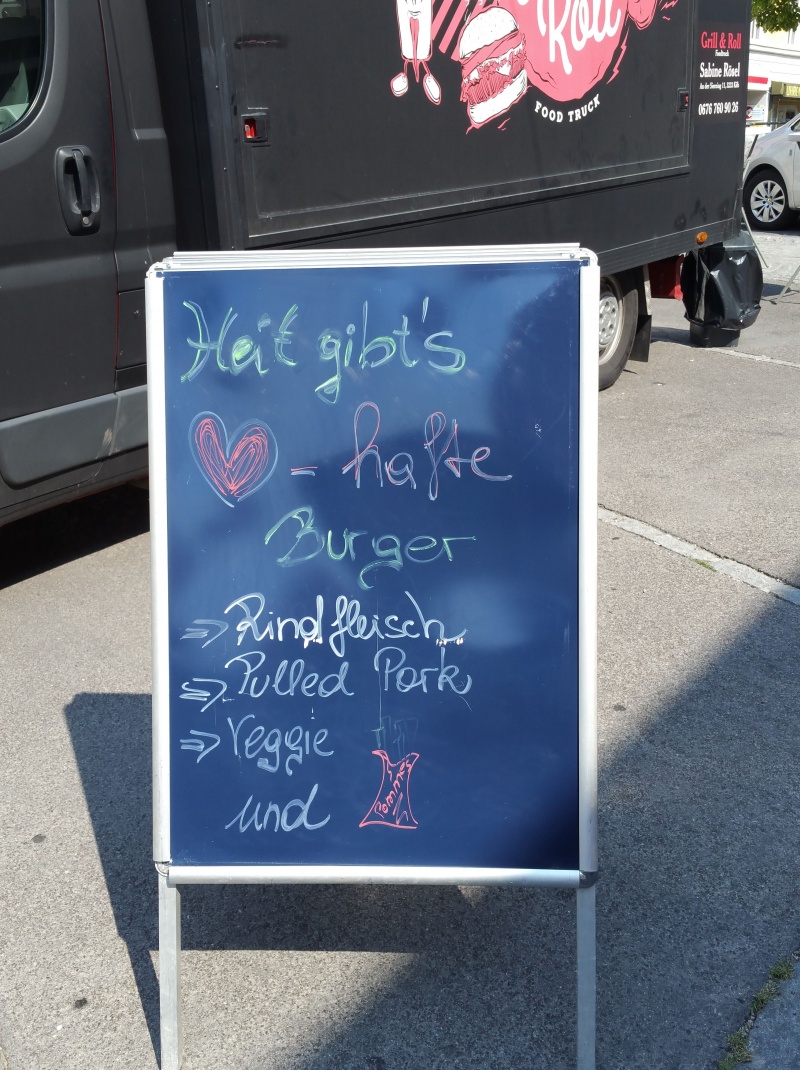 Roll
FOOD TRUCK
Grill & Roll
Foodtruck
Sabine Rösel
0676 760 90 26
Heit gibt's
- hafte
Burger
⇒ Rindfleisch
⇒ Pulled Pork
⇒ Veggie
und
Pommes